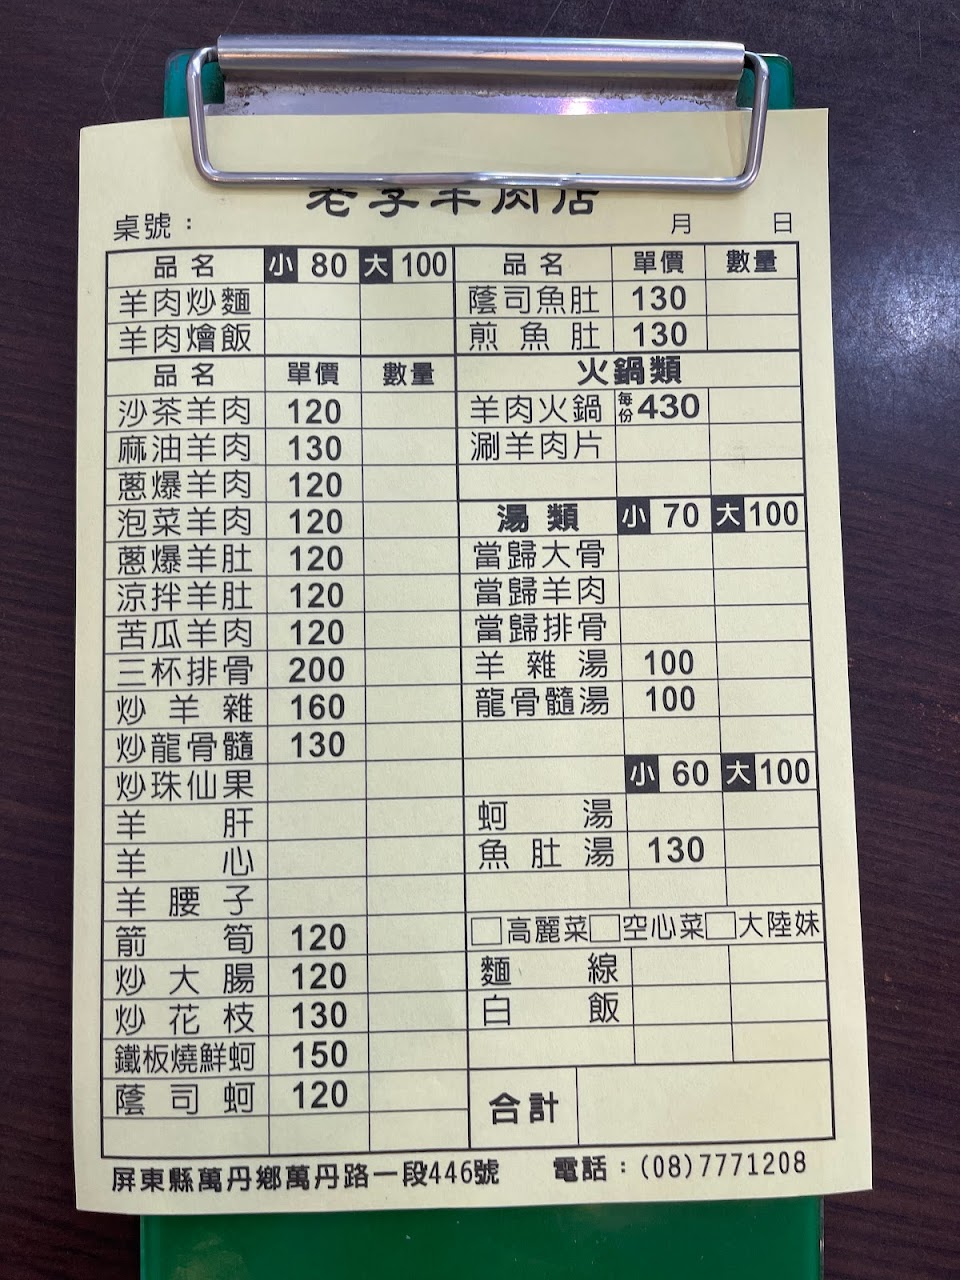 老李羊肉店
桌號： 月 日
品名 小 80 大 100
羊肉炒麵
羊肉燴飯
品名 單價 數量
沙茶羊肉 120
麻油羊肉 130
蔥爆羊肉 120
泡菜羊肉 120
蔥爆羊肚 120
涼拌羊肚 120
苦瓜羊肉 120
三杯排骨 200
炒羊雜 160
炒龍骨髓 130
炒珠仙果
羊肝
羊心
羊腰子
箭筍 120
炒大腸 120
炒花枝 130
鐵板燒鮮蚵 150
蔭司蚵 120
品名 單價 數量
蔭司魚肚 130
煎魚肚 130
火鍋類
羊肉火鍋 每份 430
涮羊肉片
湯類 小 70 大 100
當歸大骨
當歸羊肉
當歸排骨
羊雜湯 100
龍骨髓湯 100
小 60 大 100
蚵湯
魚肚湯 130
高麗菜 空心菜 大陸妹
麵線
白飯
合計
屏東縣萬丹鄉萬丹路一段446號 電話：(08)7771208